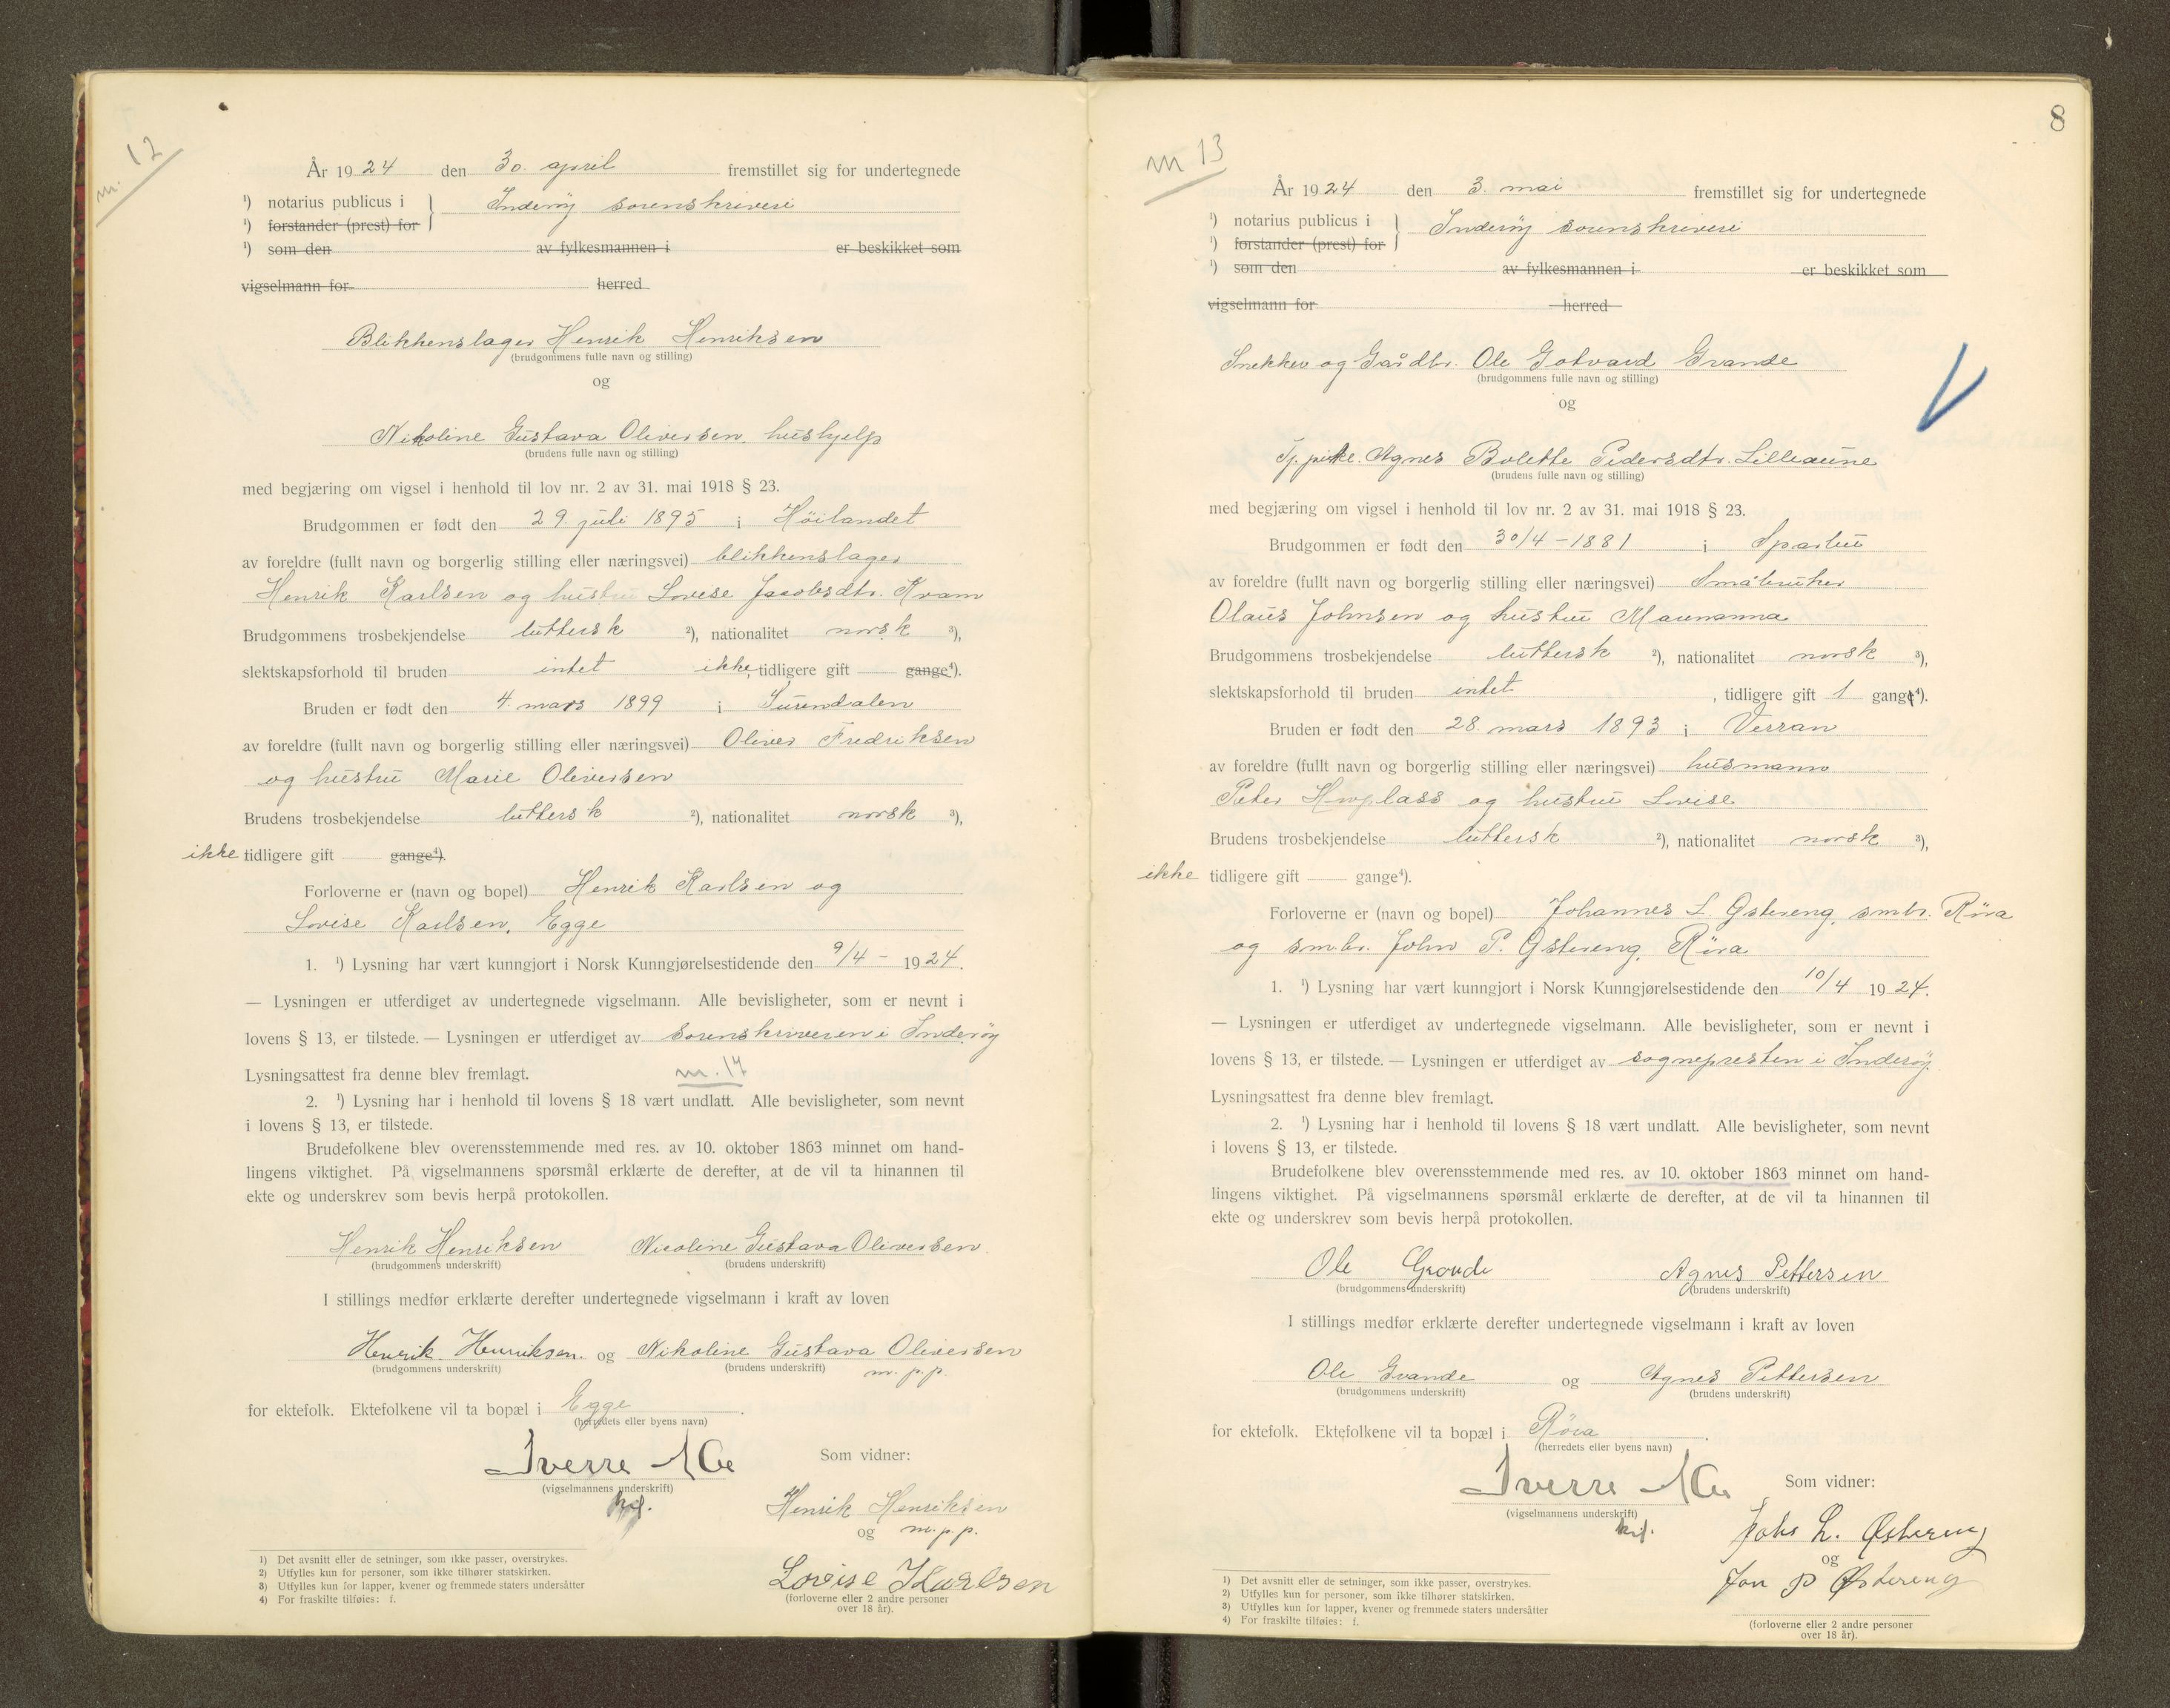 m. 12
År 1924 den 30. april fremstillet sig for undertegnede
¹) notarius publicus i } Inderöy sorenskriveri
¹) forstander (prest) for
¹) som den av fylkesmannen i er beskikket som
vigselmann for herred
Blikkenslager Henrik Henriksen
(brudgommens fulle navn og stilling)
og
Nikoline Gustava Oliversen, hushjelp
(brudens fulle navn og stilling)
med begjæring om vigsel i henhold til lov nr. 2 av 31. mai 1918 § 23.
Brudgommen er født den 29. juli 1895 i Höilandet
av foreldre (fullt navn og borgerlig stilling eller næringsvei) blikkenslager
Henrik Karlsen og hustru Lovise Jacobsdtr. Kvam
Brudgommens trosbekjendelse luthersk ²), nationalitet norsk ³),
slektskapsforhold til bruden intet ikke, tidligere gift gange⁴).
Bruden er født den 4. mars 1899 i Surendalen
av foreldre (fullt navn og borgerlig stilling eller næringsvei) Oliver Fredriksen
og hustru Marie Oliversen
Brudens trosbekjendelse luthersk ²), nationalitet norsk ³),
ikke tidligere gift gange⁴).
Forloverne er (navn og bopel) Henrik Karlsen og
Lovise Karlsen, Egge
1. ¹) Lysning har vært kunngjort i Norsk Kunngjørelsestidende den 9/4 - 1924.
— Lysningen er utferdiget av undertegnede vigselmann. Alle bevisligheter, som er nevnt i
lovens § 13, er tilstede. — Lysningen er utferdiget av sorenskriveren i Inderöy
Lysningsattest fra denne blev fremlagt. m. 14
2. ¹) Lysning har i henhold til lovens § 18 vært undlatt. Alle bevisligheter, som nevnt
i lovens § 13, er tilstede.
Brudefolkene blev overensstemmende med res. av 10. oktober 1863 minnet om hand-
lingens viktighet. På vigselmannens spørsmål erklærte de derefter, at de vil ta hinannen til
ekte og underskrev som bevis herpå protokollen.
Henrik Henriksen Nicoline Gustava Oliversen
(brudgommens underskrift) (brudens underskrift)
I stillings medfør erklærte derefter undertegnede vigselmann i kraft av loven
Henrik Henriksen. og Nikoline Gustava Oliversen
(brudgommens underskrift) (brudens underskrift) m. p. p.
for ektefolk. Ektefolkene vil ta bopæl i Egge.
(herredets eller byens navn)
Sverre Som vidner:
(vigselmannens underskrift)
Henrik Henriksen
og m. p. p.
Lovise Karlsen
(forloverne eller 2 andre personer
over 18 år).
1) Det avsnitt eller de setninger, som ikke passer, overstrykes.
2) Utfylles kun for personer, som ikke tilhører statskirken.
3) Utfylles kun for lapper, kvener og fremmede staters undersåtter
4) For fraskilte tilføies: f.
8
m 13
År 1924 den 3. mai fremstillet sig for undertegnede
¹) notarius publicus i } Inderöy sorenskriveri
¹) forstander (prest) for
¹) som den av fylkesmannen i er beskikket som
vigselmann for herred
Snekker og Gårdbr. Ole Gotvard Grande
(brudgommens fulle navn og stilling)
og
Tj. pike. Agnes Bolette Pedersdtr. Lilleaune
(brudens fulle navn og stilling)
med begjæring om vigsel i henhold til lov nr. 2 av 31. mai 1918 § 23.
Brudgommen er født den 30/4 - 1881 i Sparbu
av foreldre (fullt navn og borgerlig stilling eller næringsvei) Småbruker
Olaus Johnsen og hustru
Brudgommens trosbekjendelse luthersk ²), nationalitet norsk ³),
slektskapsforhold til bruden intet, tidligere gift 1 gang⁴).
Bruden er født den 28. mars 1893 i Verran
av foreldre (fullt navn og borgerlig stilling eller næringsvei) husmann
Peter og hustru Lovise
Brudens trosbekjendelse luthersk ²), nationalitet norsk ³),
ikke tidligere gift gange⁴).
Forloverne er (navn og bopel) Johannes L. Östereng, smbr. Röra
og smbr. John P. Östereng, Röra
1. ¹) Lysning har vært kunngjort i Norsk Kunngjørelsestidende den 10/4 1924.
— Lysningen er utferdiget av undertegnede vigselmann. Alle bevisligheter, som er nevnt i
lovens § 13, er tilstede. — Lysningen er utferdiget av sognepresten i Inderöy.
Lysningsattest fra denne blev fremlagt.
2. ¹) Lysning har i henhold til lovens § 18 vært undlatt. Alle bevisligheter, som nevnt
i lovens § 13, er tilstede.
Brudefolkene blev overensstemmende med res. av 10. oktober 1863 minnet om hand-
lingens viktighet. På vigselmannens spørsmål erklærte de derefter, at de vil ta hinannen til
ekte og underskrev som bevis herpå protokollen.
Ole Grande Agnes Pettersen
(brudgommens underskrift) (brudens underskrift)
I stillings medfør erklærte derefter undertegnede vigselmann i kraft av loven
Ole Grande og Agnes Pettersen
(brudgommens underskrift) (brudens underskrift)
for ektefolk. Ektefolkene vil ta bopæl i Röra.
(herredets eller byens navn)
Sverre Som vidner:
(vigselmannens underskrift)
Johs L. Østereng
og
Jon P Østereng
(forloverne eller 2 andre personer
over 18 år).
1) Det avsnitt eller de setninger, som ikke passer, overstrykes.
2) Utfylles kun for personer, som ikke tilhører statskirken.
3) Utfylles kun for lapper, kvener og fremmede staters undersåtter
4) For fraskilte tilføies: f.